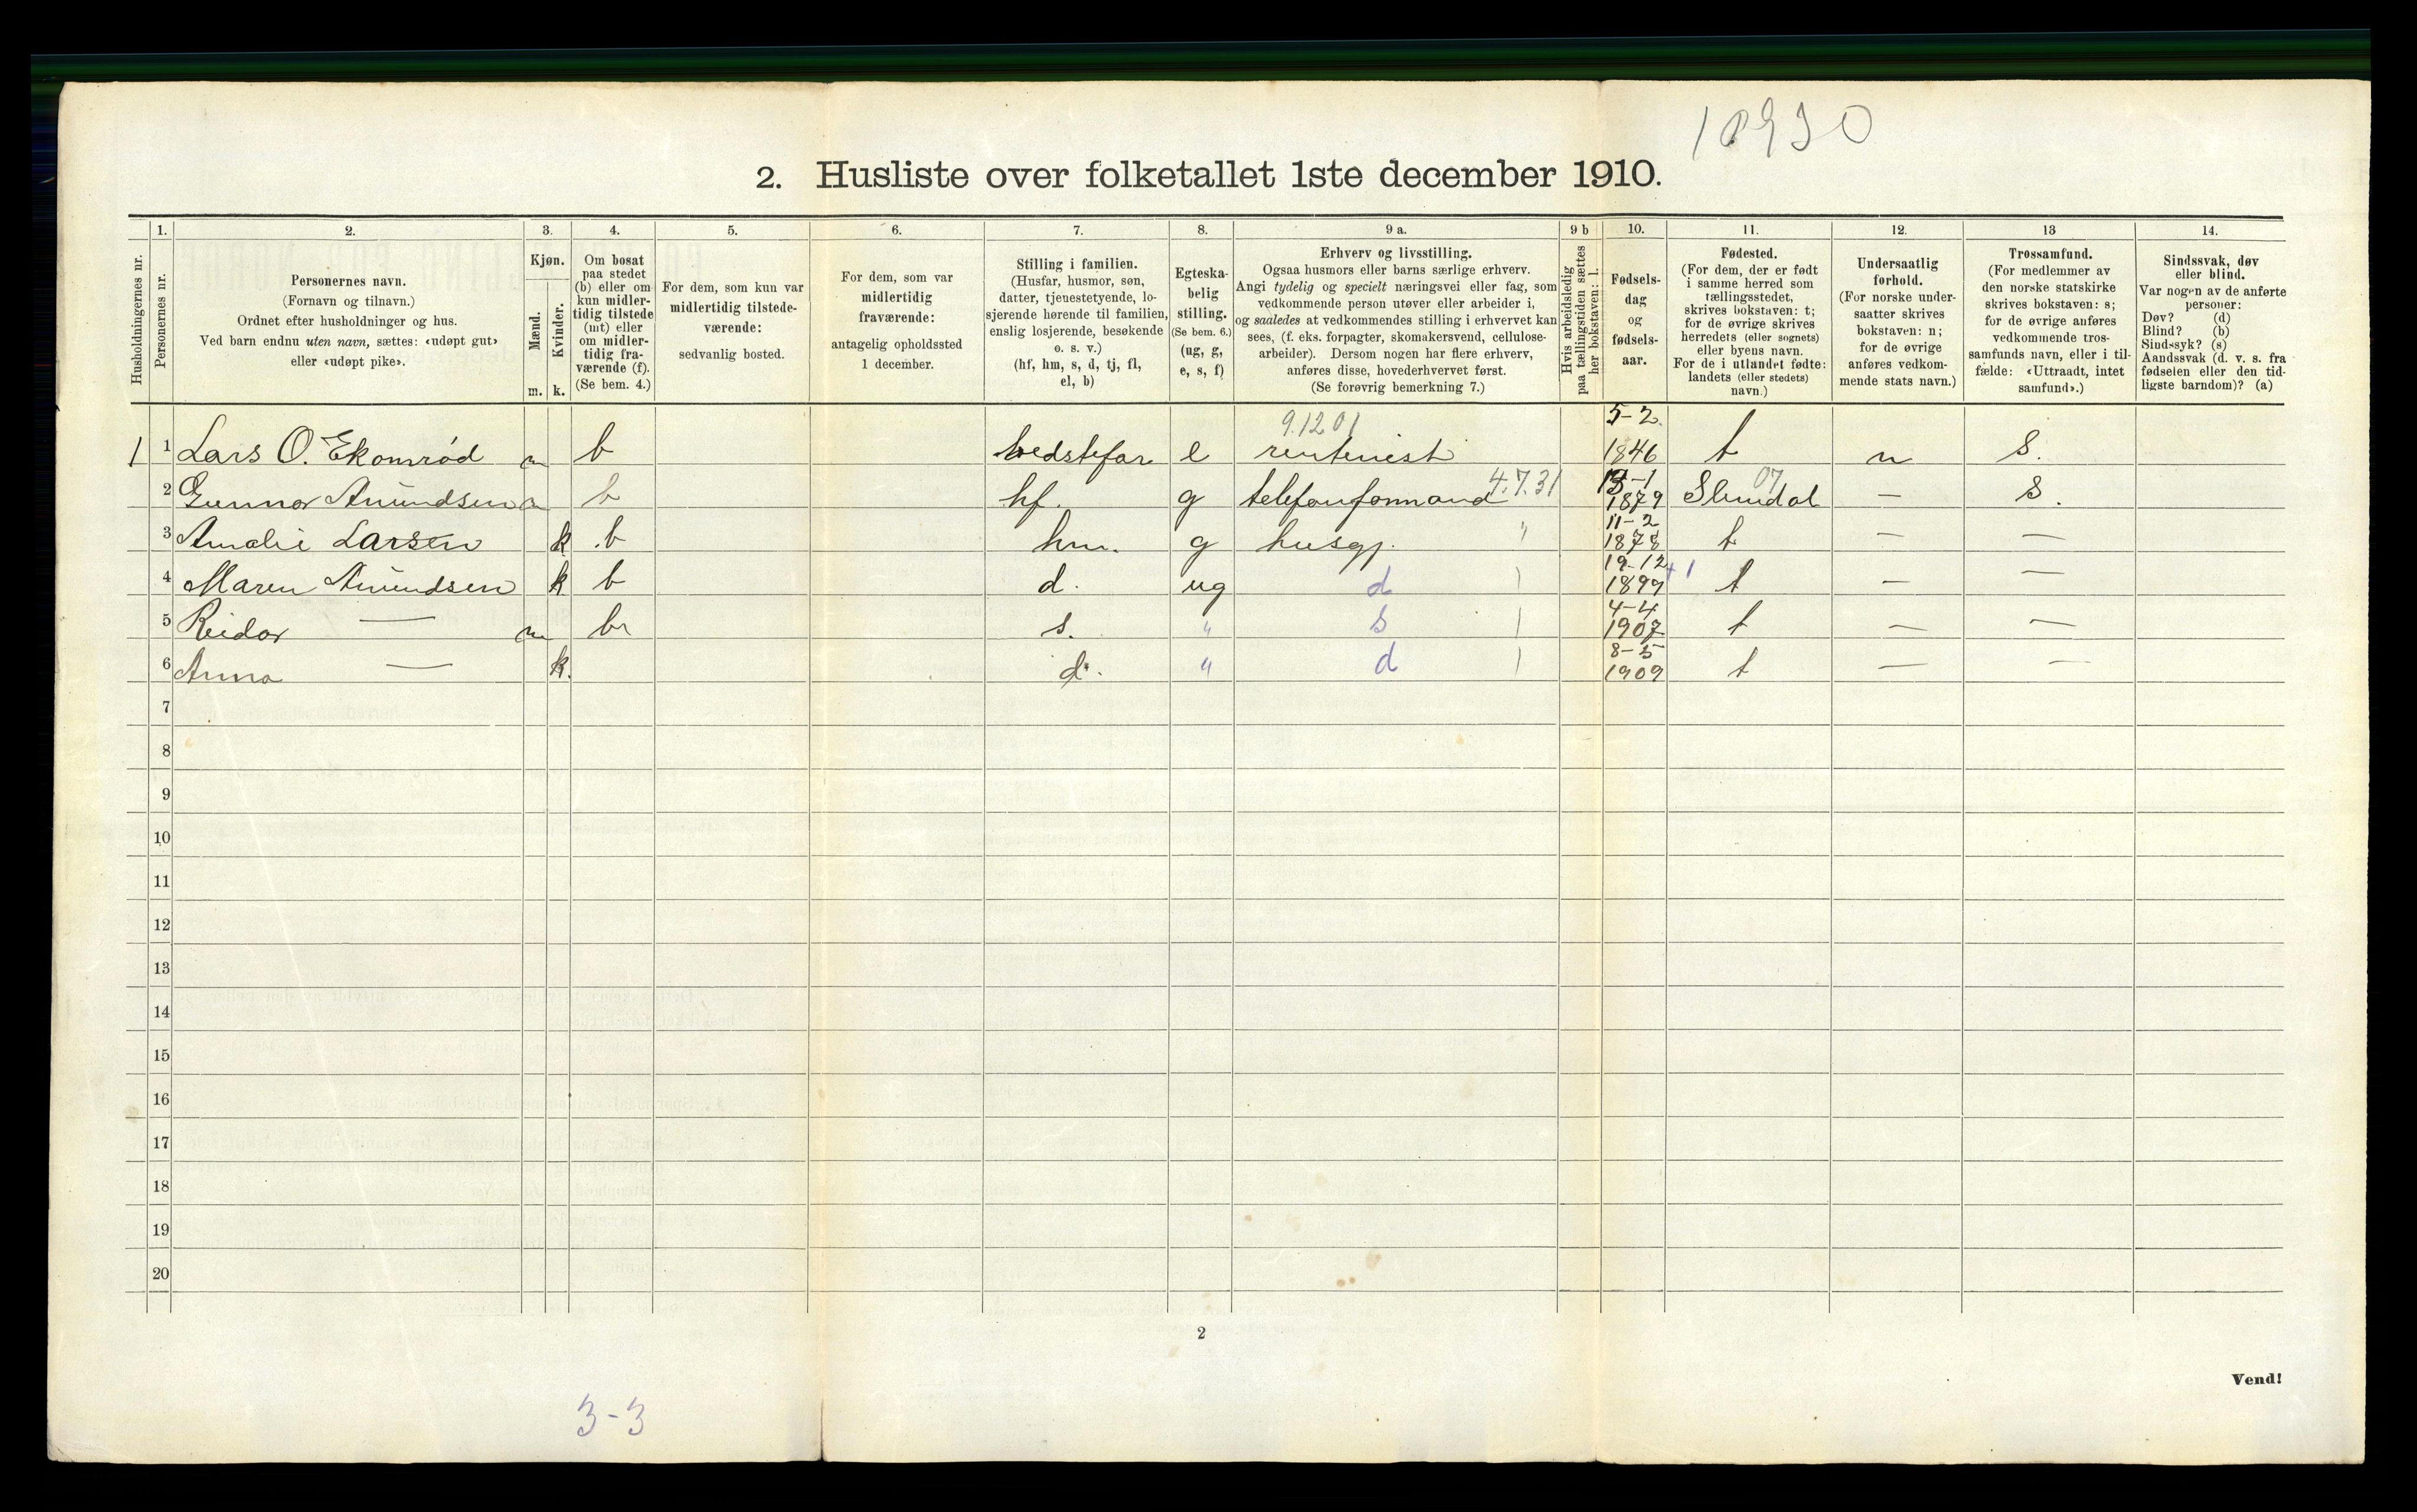 10930
2. Husliste over folketallet 1ste december 1910.
Husholdningernes nr.
1.
Personernes nr.
2.
Personernes navn.
(Fornavn og tilnavn.)
Ordnet efter husholdninger og hus.
Ved barn endnu uten navn, sættes: «udøpt gut»
eller «udøpt pike».
3.
Kjøn.
Mænd.
Kvinder.
m. k.
4.
Om bosat
paa stedet
(b) eller om
kun midler-
tidig tilstede
(mt) eller
om midler-
tidig fra-
værende (f).
(Se bem. 4.)
5.
For dem, som kun var
midlertidig tilstede-
værende:
sedvanlig bosted.
6.
For dem, som var
midlertidig
fraværende:
antagelig opholdssted
1 december.
7.
Stilling i familien.
(Husfar, husmor, søn,
datter, tjenestetyende, lo-
sjerende hørende til familien,
enslig losjerende, besøkende
o. s. v.)
(hf, hm, s, d, tj, fl,
el, b)
8.
Egteska-
belig
stilling.
(Se bem. 6.)
(ug, g,
e, s, f)
9 a.
Erhverv og livsstilling.
Ogsaa husmors eller barns særlige erhverv.
Angi tydelig og specielt næringsvei eller fag, som
vedkommende person utøver eller arbeider i,
og saaledes at vedkommendes stilling i erhvervet kan
sees, (f. eks. forpagter, skomakersvend, cellulose-
arbeider). Dersom nogen har flere erhverv,
anføres disse, hovederhvervet først.
(Se forøvrig bemerkning 7.)
9 b
Hvis arbeidsledig
paa tællingstiden sættes
her bokstaven: l.
10.
Fødsels-
dag
og
fødsels-
aar.
11.
Fødested.
(For dem, der er født
i samme herred som
tællingsstedet,
skrives bokstaven: t;
for de øvrige skrives
herredets (eller sognets)
eller byens navn.
For de i utlandet fødte:
landets (eller stedets)
navn.)
12.
Undersaatlig
forhold.
(For norske under-
saatter skrives
bokstaven: n;
for de øvrige
anføres vedkom-
mende stats navn.)
13
Trossamfund.
(For medlemmer av
den norske statskirke
skrives bokstaven: s;
for de øvrige anføres
vedkommende tros-
samfunds navn, eller i til-
fælde: «Uttraadt, intet
samfund».)
14.
Sindssvak, døv
eller blind.
Var nogen av de anførte
personer:
Døv? (d)
Blind? (b)
Sindssyk? (s)
Aandssvak (d. v. s. fra
fødselen eller den tid-
ligste barndom)? (a)
1 1 Lars O. Ekornrød m b bedstefar e 9.1201 rentenist 5-2 1846 t n s.
2 Gunnar Amundsen m b hf. g telefonformand 4.7.31 13-1 1879 07 - s.
3 Amalie Larsen k b hm. g husgj. " 11-2 1878 t — —
4 Maren Amundsen k b d. ug d 19-12 1899 +1 t — —
5 Reidar — m b s. " s 4-4 1907 t — —
6 Anna — k. d. " d 8-5 1909 t — —
7
8
9
10
11
12
13
14
15
16
17
18
19
20
2
Vend!
3-3